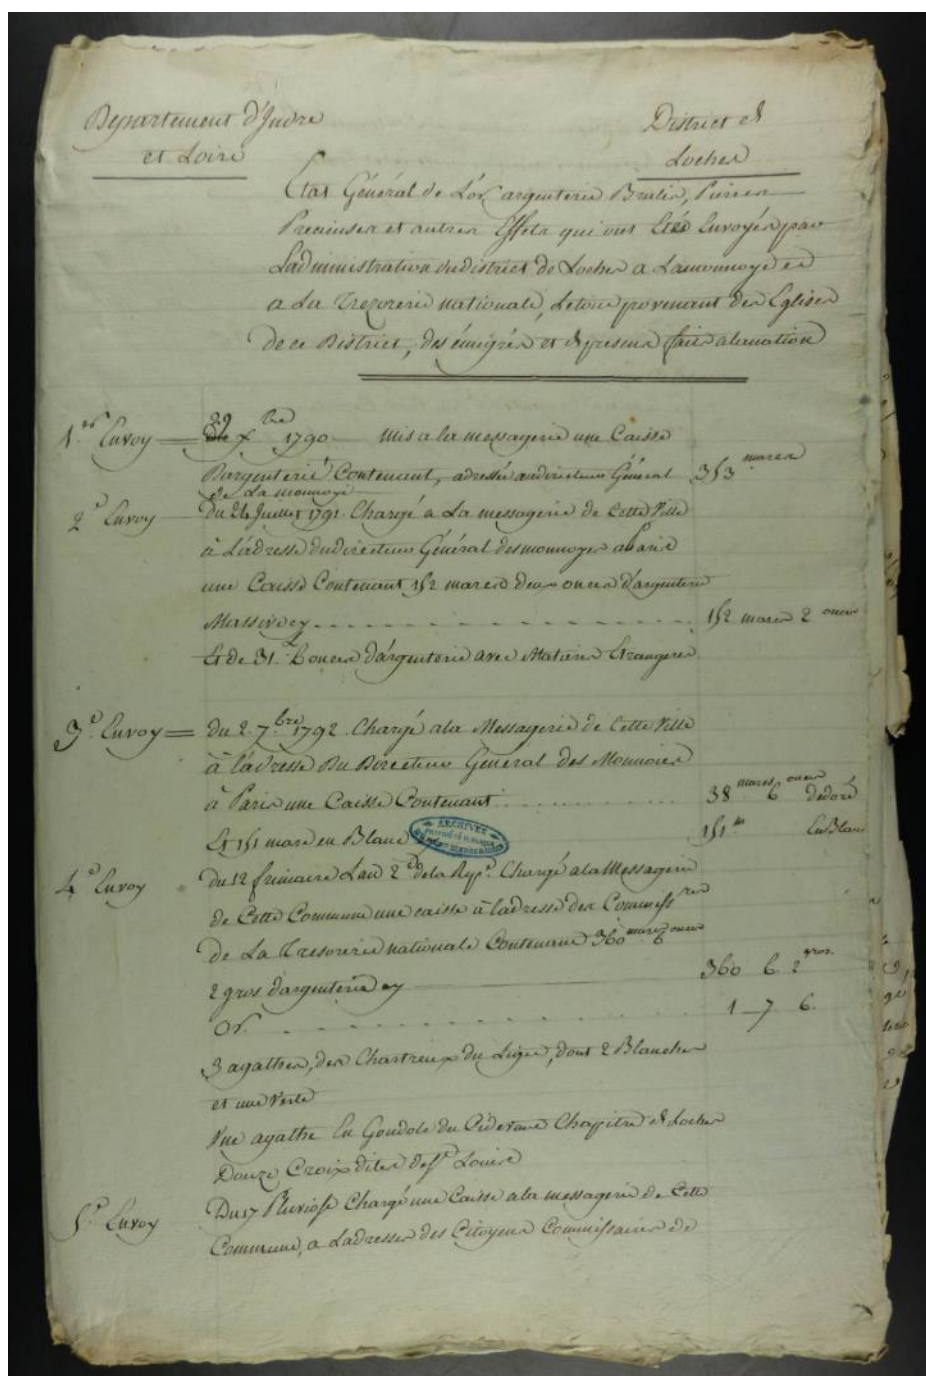 Departement d'Indre
et Loire
District de
Loches
Etat Général de L'or, argenterie Brulée, Pierres
Precieuses et autres Effets qui ont Eté Envoyés par
Ladministration dudistrict de Loches a Lamonnoye et
a La Trezorerie nationale, Letout provenant des Eglises
de ce District, des émigrés et de presens faits alanation
1er Envoy
xbre 1790 mis a la messagerie une Caisse
Dargenterie Contenant, adressée audirecteur Général 353 marcs
de La monnoye
2e Envoy
Du 26 Juillet 1791. Chargé a La messagerie de Cette Ville
à L'adresse dudirecteur Général desmonnoyes aParis
une Caisse Contenant 152 marcs deux onces d'argenterie
Massive cy 152 marcs 2 onces
Et de 31. 6 onces d'argenterie avec Matieres Etrangeres
3e Envoy
du 2. 7bre 1792. Chargé ala Messagerie de Cette Ville
à l'adresse Du Directeur Général des Monnoies
à Paris une Caisse Contenant 38 marcs 6 onces dedoré
Et 151 marc en Blanc 151 m EnBlanc
ARCHIVES
4e Envoy
du 12 frimaire Lan 2e dela Rep.e Chargé ala Messagerie
de Cette Commune une caisse à ladresse des Commissres
de La Tresorerie nationale Contenant 360 marcs 6 onces
2 gros d'argenterie cy 360 6 2 gros.
Or 1 7 6.
3 agathes, des Chartreux du Liget, dont 2 Blanches
et une Verte
Une agathe En Gondole du Cidevant Chapitre de Loches
Douze Croix dites deSt Louis
5e Envoy
Du 17 Pluviose Chargé une Caisse ala messagerie de Cette
Commune, a Ladresse des Citoyens Commissaires de